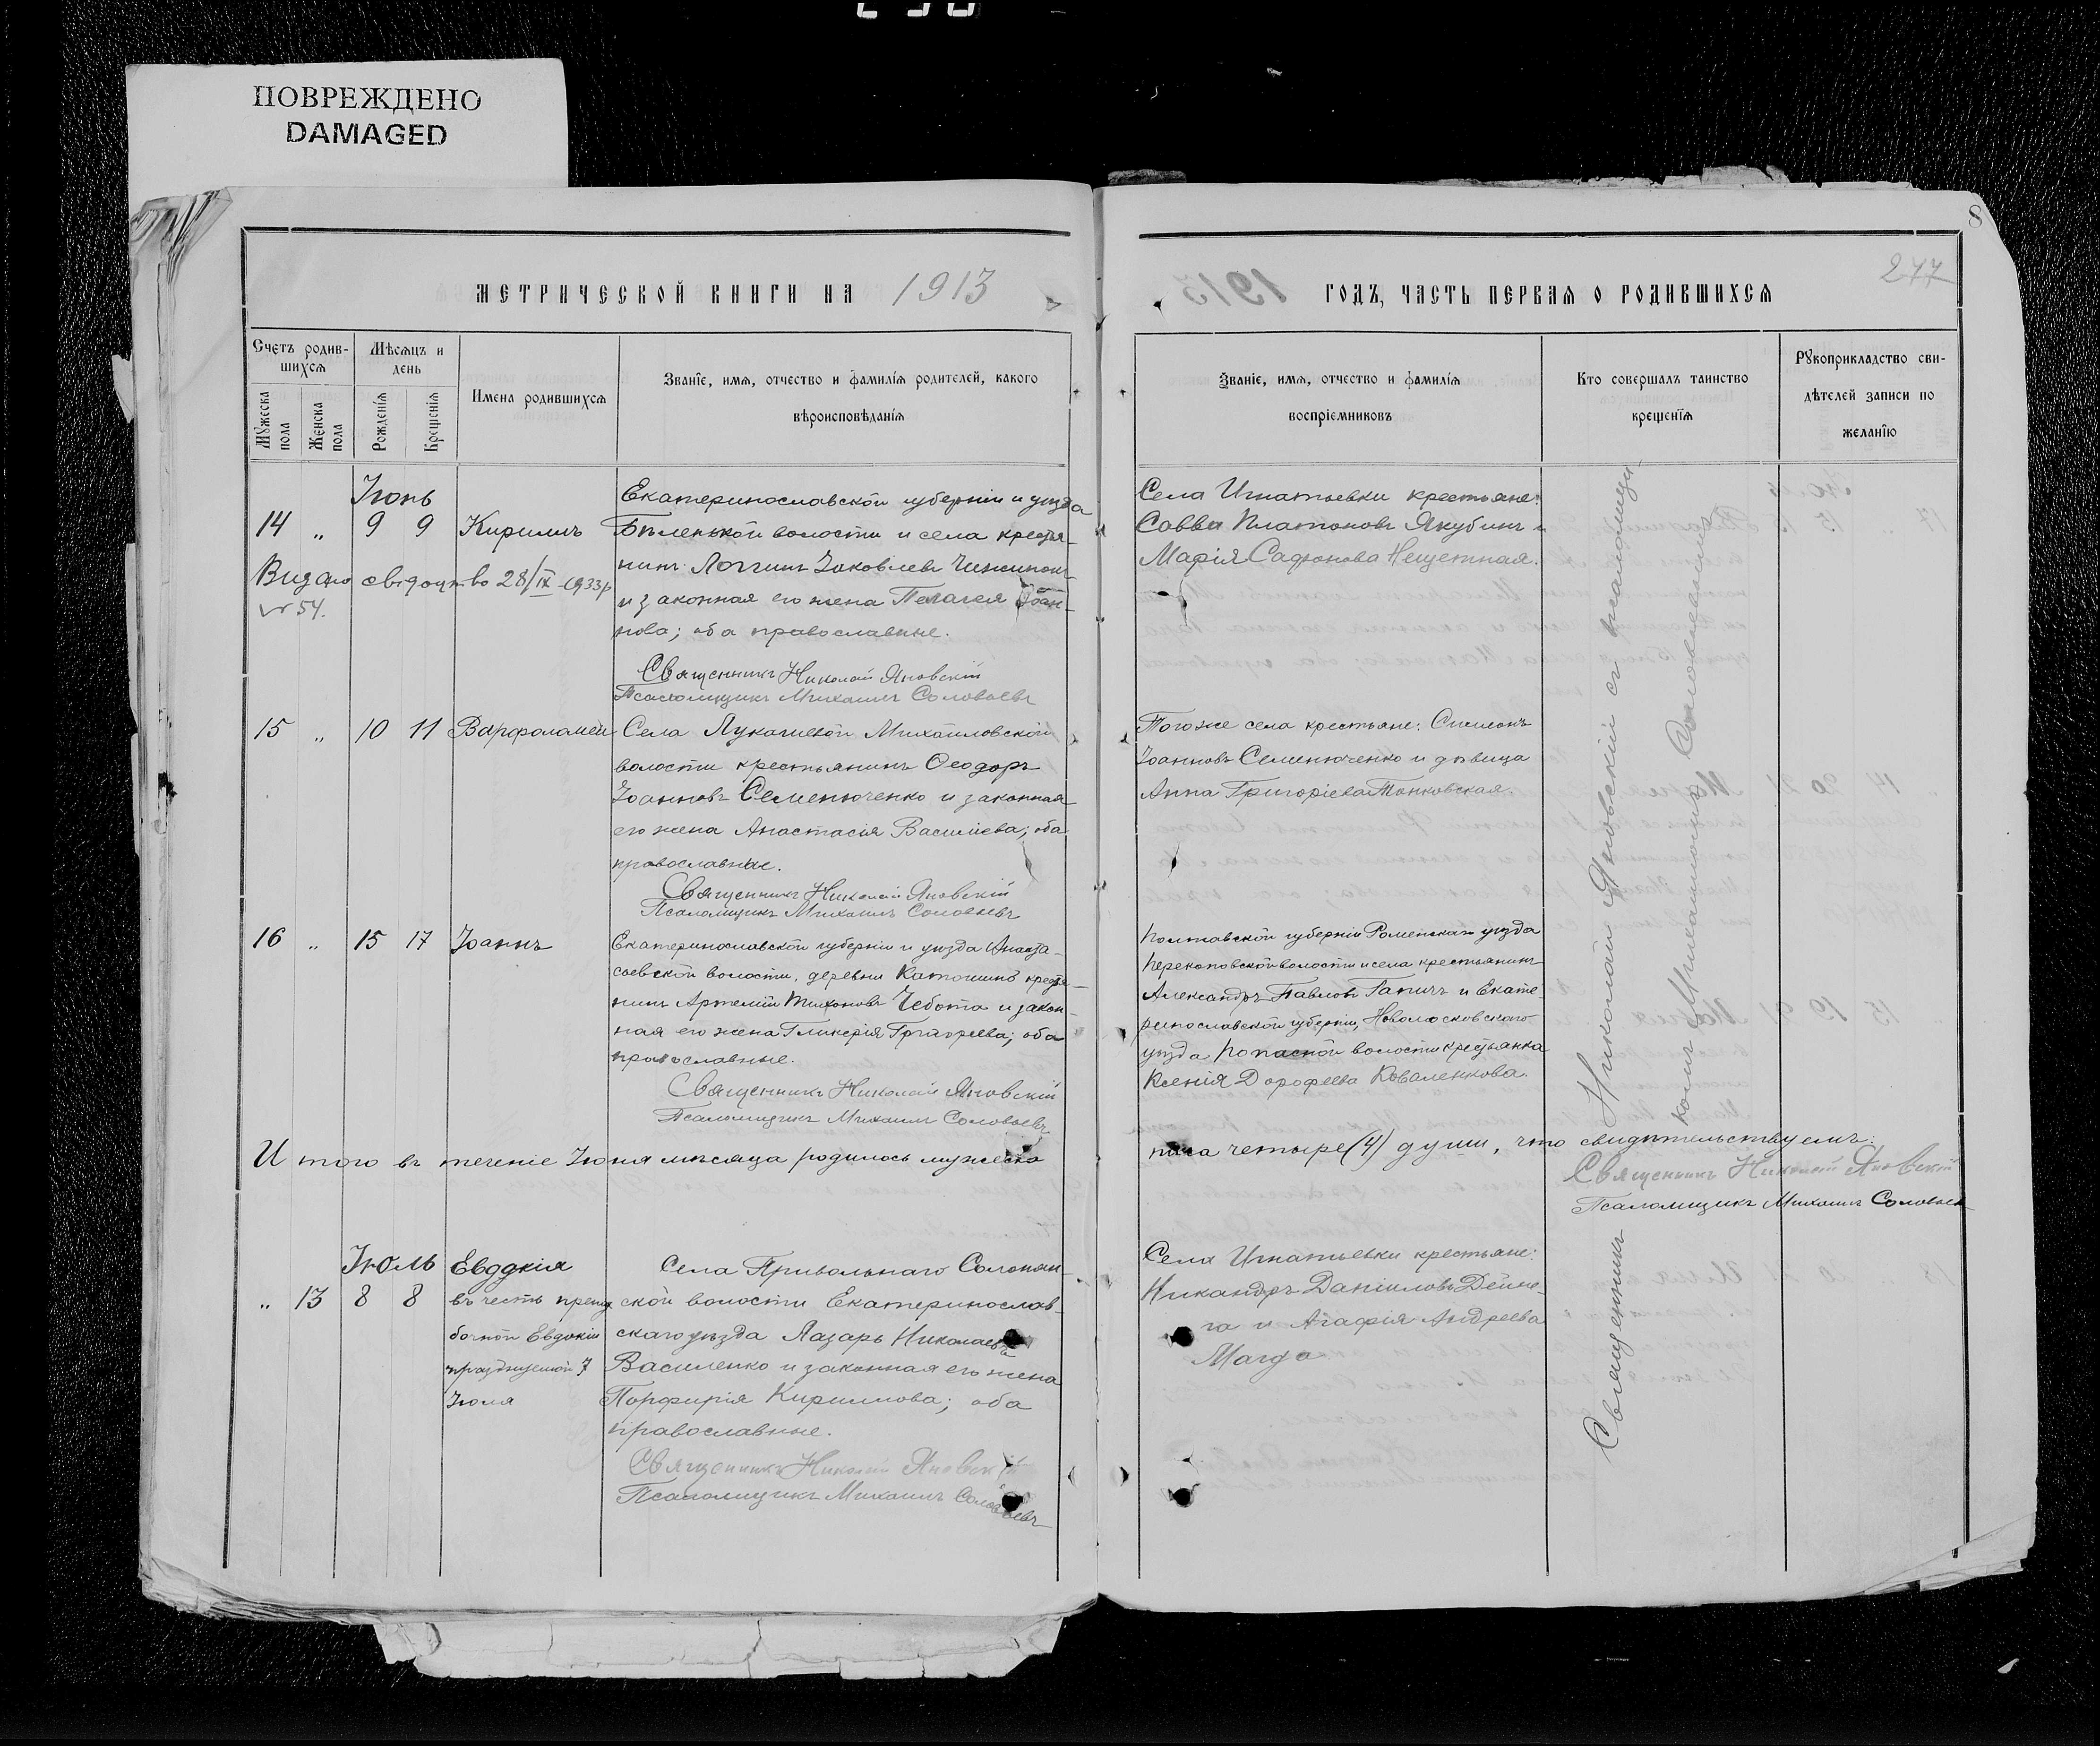 ПОВРЕЖДЕНО
DAMAGED
8
277
МЕТРИЧЕСКОЙ КНИГИ НА 1913
ГОДЪ, ЧАСТЬ ПЕРВАЯ О РОДИВШИХСЯ
Счетъ родив-
шихся
Мужеска пола
Женска пола
Мѣсяцъ и
день
Рожденія
Крещенія
Имена родившихся
Званіе, имя, отчество и фамилія родителей, какого
вѣроисповѣданія
Званіе, имя, отчество и фамилія
воспріемниковъ
Кто совершалъ таинство
крещенія
Рукоприкладство сви-
дѣтелей записи по
желанію
Іюнь
14 „ 9 9 Кириллъ
Видано свідоцтво 28/IX-1933р
№ 54.
Екатеринославской губерніи и уѣзда
Бѣленькой волости и села крестья-
нинъ Логгинъ Іаковлевъ
и законная его жена Пелагея Іоан-
нова; оба православные.
Священникъ Николай Яновскій
Псаломщикъ Михаилъ Соловьевъ
Села Игнатьевки крестьяне:
Савва Платоновъ Якубинъ и
Марія Сафонова Нещетная.
15 „ 10 11 Варфоломей
Села Лукашевой Михайловской
волости крестьянинъ Ѳеодоръ
Іоанновъ Семенюченко и законная
его жена Анастасія Василіева; оба
православные.
Священникъ Николай Яновскій
Псаломщикъ Михаилъ Соловьевъ
Того же села крестьяне: Симеонъ
Іоанновъ Семенюченко и дѣвица
Анна Григоріева Танковская.
16 „ 15 17 Іоаннъ
Екатеринославской губерніи и уѣзда
волости, деревни крестья-
нинъ Артемій Тихоновъ Чебота и закон-
ная его жена Гликерія Григорьева; оба
православные.
Священникъ Николай Яновскій
Псаломщикъ Михаилъ Соловьевъ
Полтавской губерніи Роменскаго уѣзда
Перекоповской волости и села крестьянинъ
Александръ Павловъ Гапичъ и Екате-
ринославской губерніи, Новомосковскаго
уѣзда Попасной волости крестьянка
Ксенія Дорофеева Коваленкова.
Итого въ теченіе Іюня мѣсяца родилось мужеска
пола четыре (4) души, что свидѣтельствуемъ:
Священникъ Николай Яновскій
Псаломщикъ Михаилъ Соловьевъ
Іюль
„ 13 8 8 Евдокія
въ честь препод
бочной Евдокіи
празднуемой 7
Іюля
Села Привольнаго Солонян-
ской волости Екатеринослав-
скаго уѣзда Лазарь Николаевъ
Василенко и законная его жена
Порфирія Кириллова; оба
православные.
Священникъ Николай Яновскій
Псаломщикъ Михаилъ Соловьевъ
Села Игнатьевки крестьяне:
Никандръ Даніиловъ Дейне-
га и Агафія Андреева
Магда
Священникъ Николай Яновскій съ псаломщи-
комъ Михаиломъ Соловьевымъ